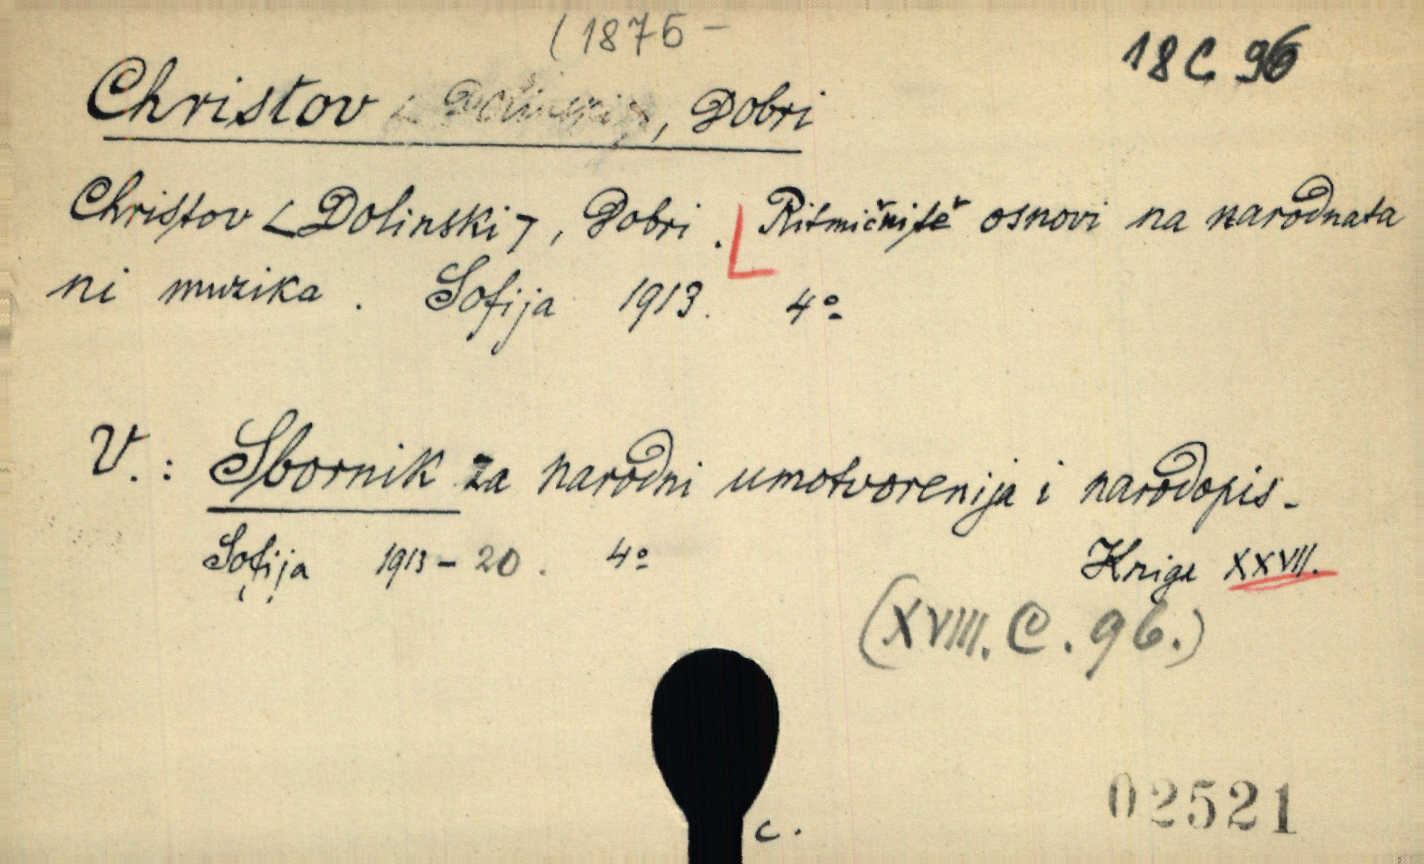 (1875-
18 C 96
Christov <Dolinski>, Dobri
Christov <Dolinski>, Dobri. Ritmičnitě osnovi na narodnata
ni muzika. Sofija 1913. 4º
V.: Sbornik za narodni umotvorenija i narodopis.
Sofija 1913-20. 4º Knige XXVII.
(XVIII. C. 96.)
02521
c.